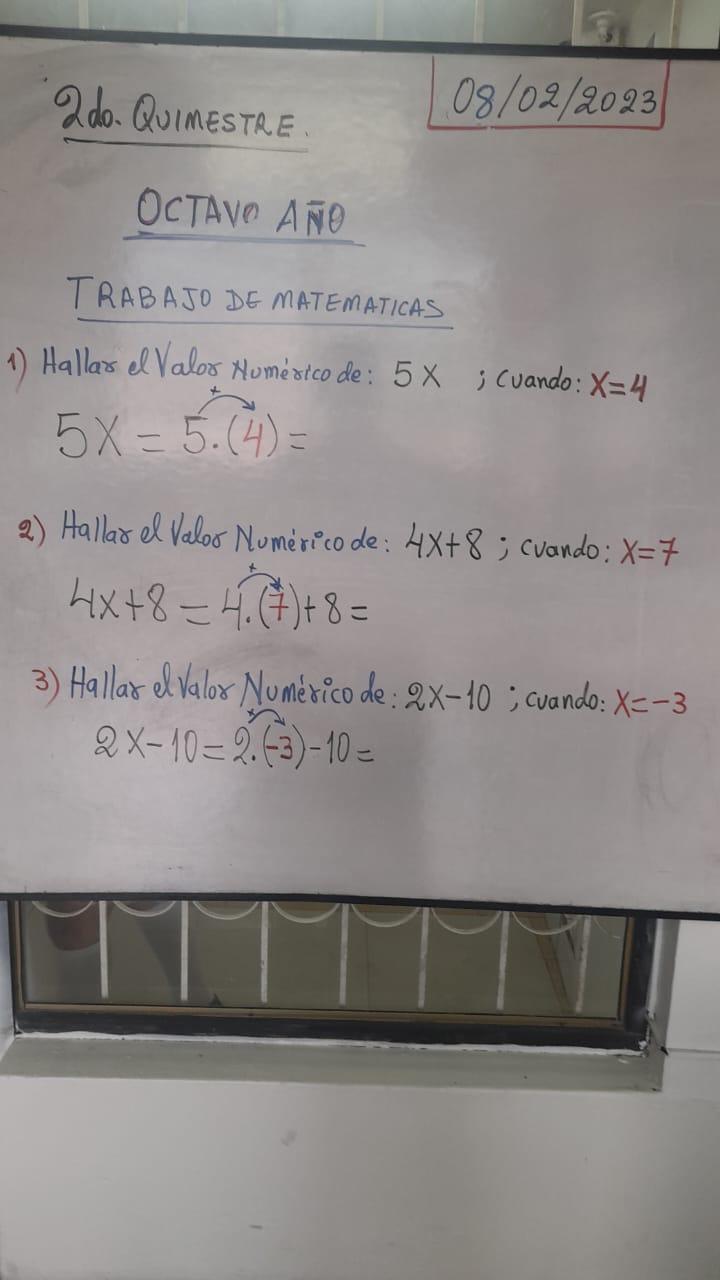 2do. QUIMESTRE.
08/02/2023
OCTAVO AÑO
TRABAJO DE MATEMATICAS
1) Hallar el Valor Numérico de: 5X ; Cuando: X=4
+
5X = 5.(4) =
2) Hallar el Valor Numérico de: 4X+8 ; Cuando: X=7
+
4X+8 = 4.(7)+8 =
3) Hallar el Valor Numérico de: 2X-10 ; Cuando: X=-3
+
2X-10 = 2.(-3)-10 =